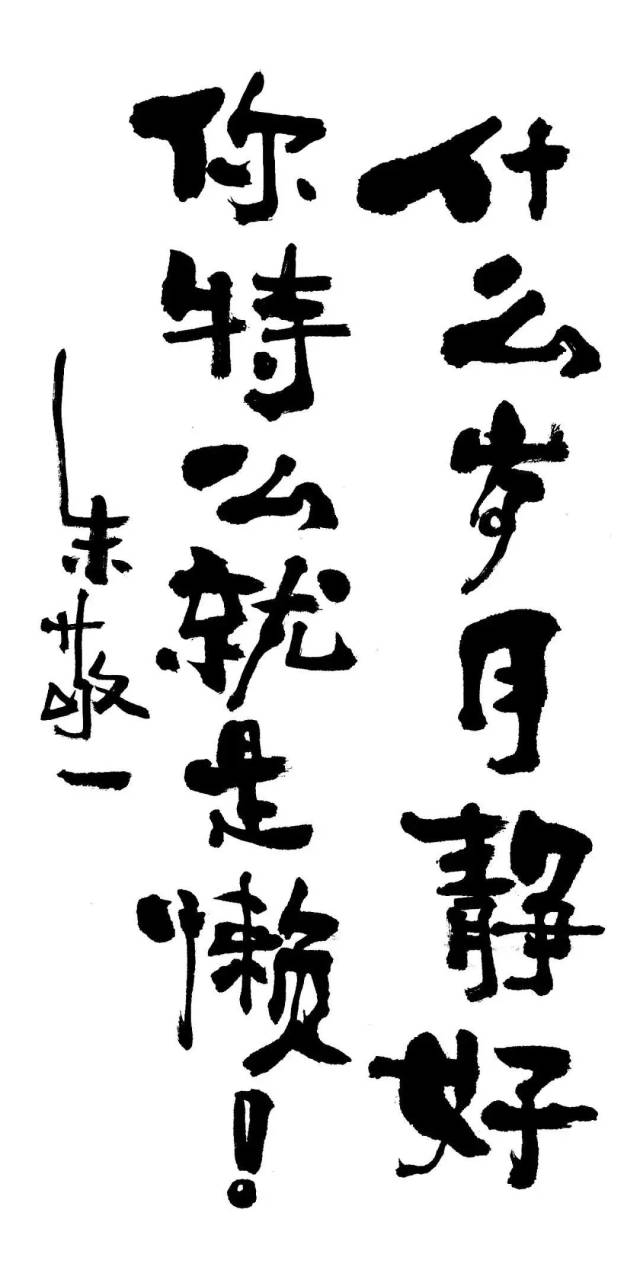 什么岁月静好
你特么就是懒！
朱敬一